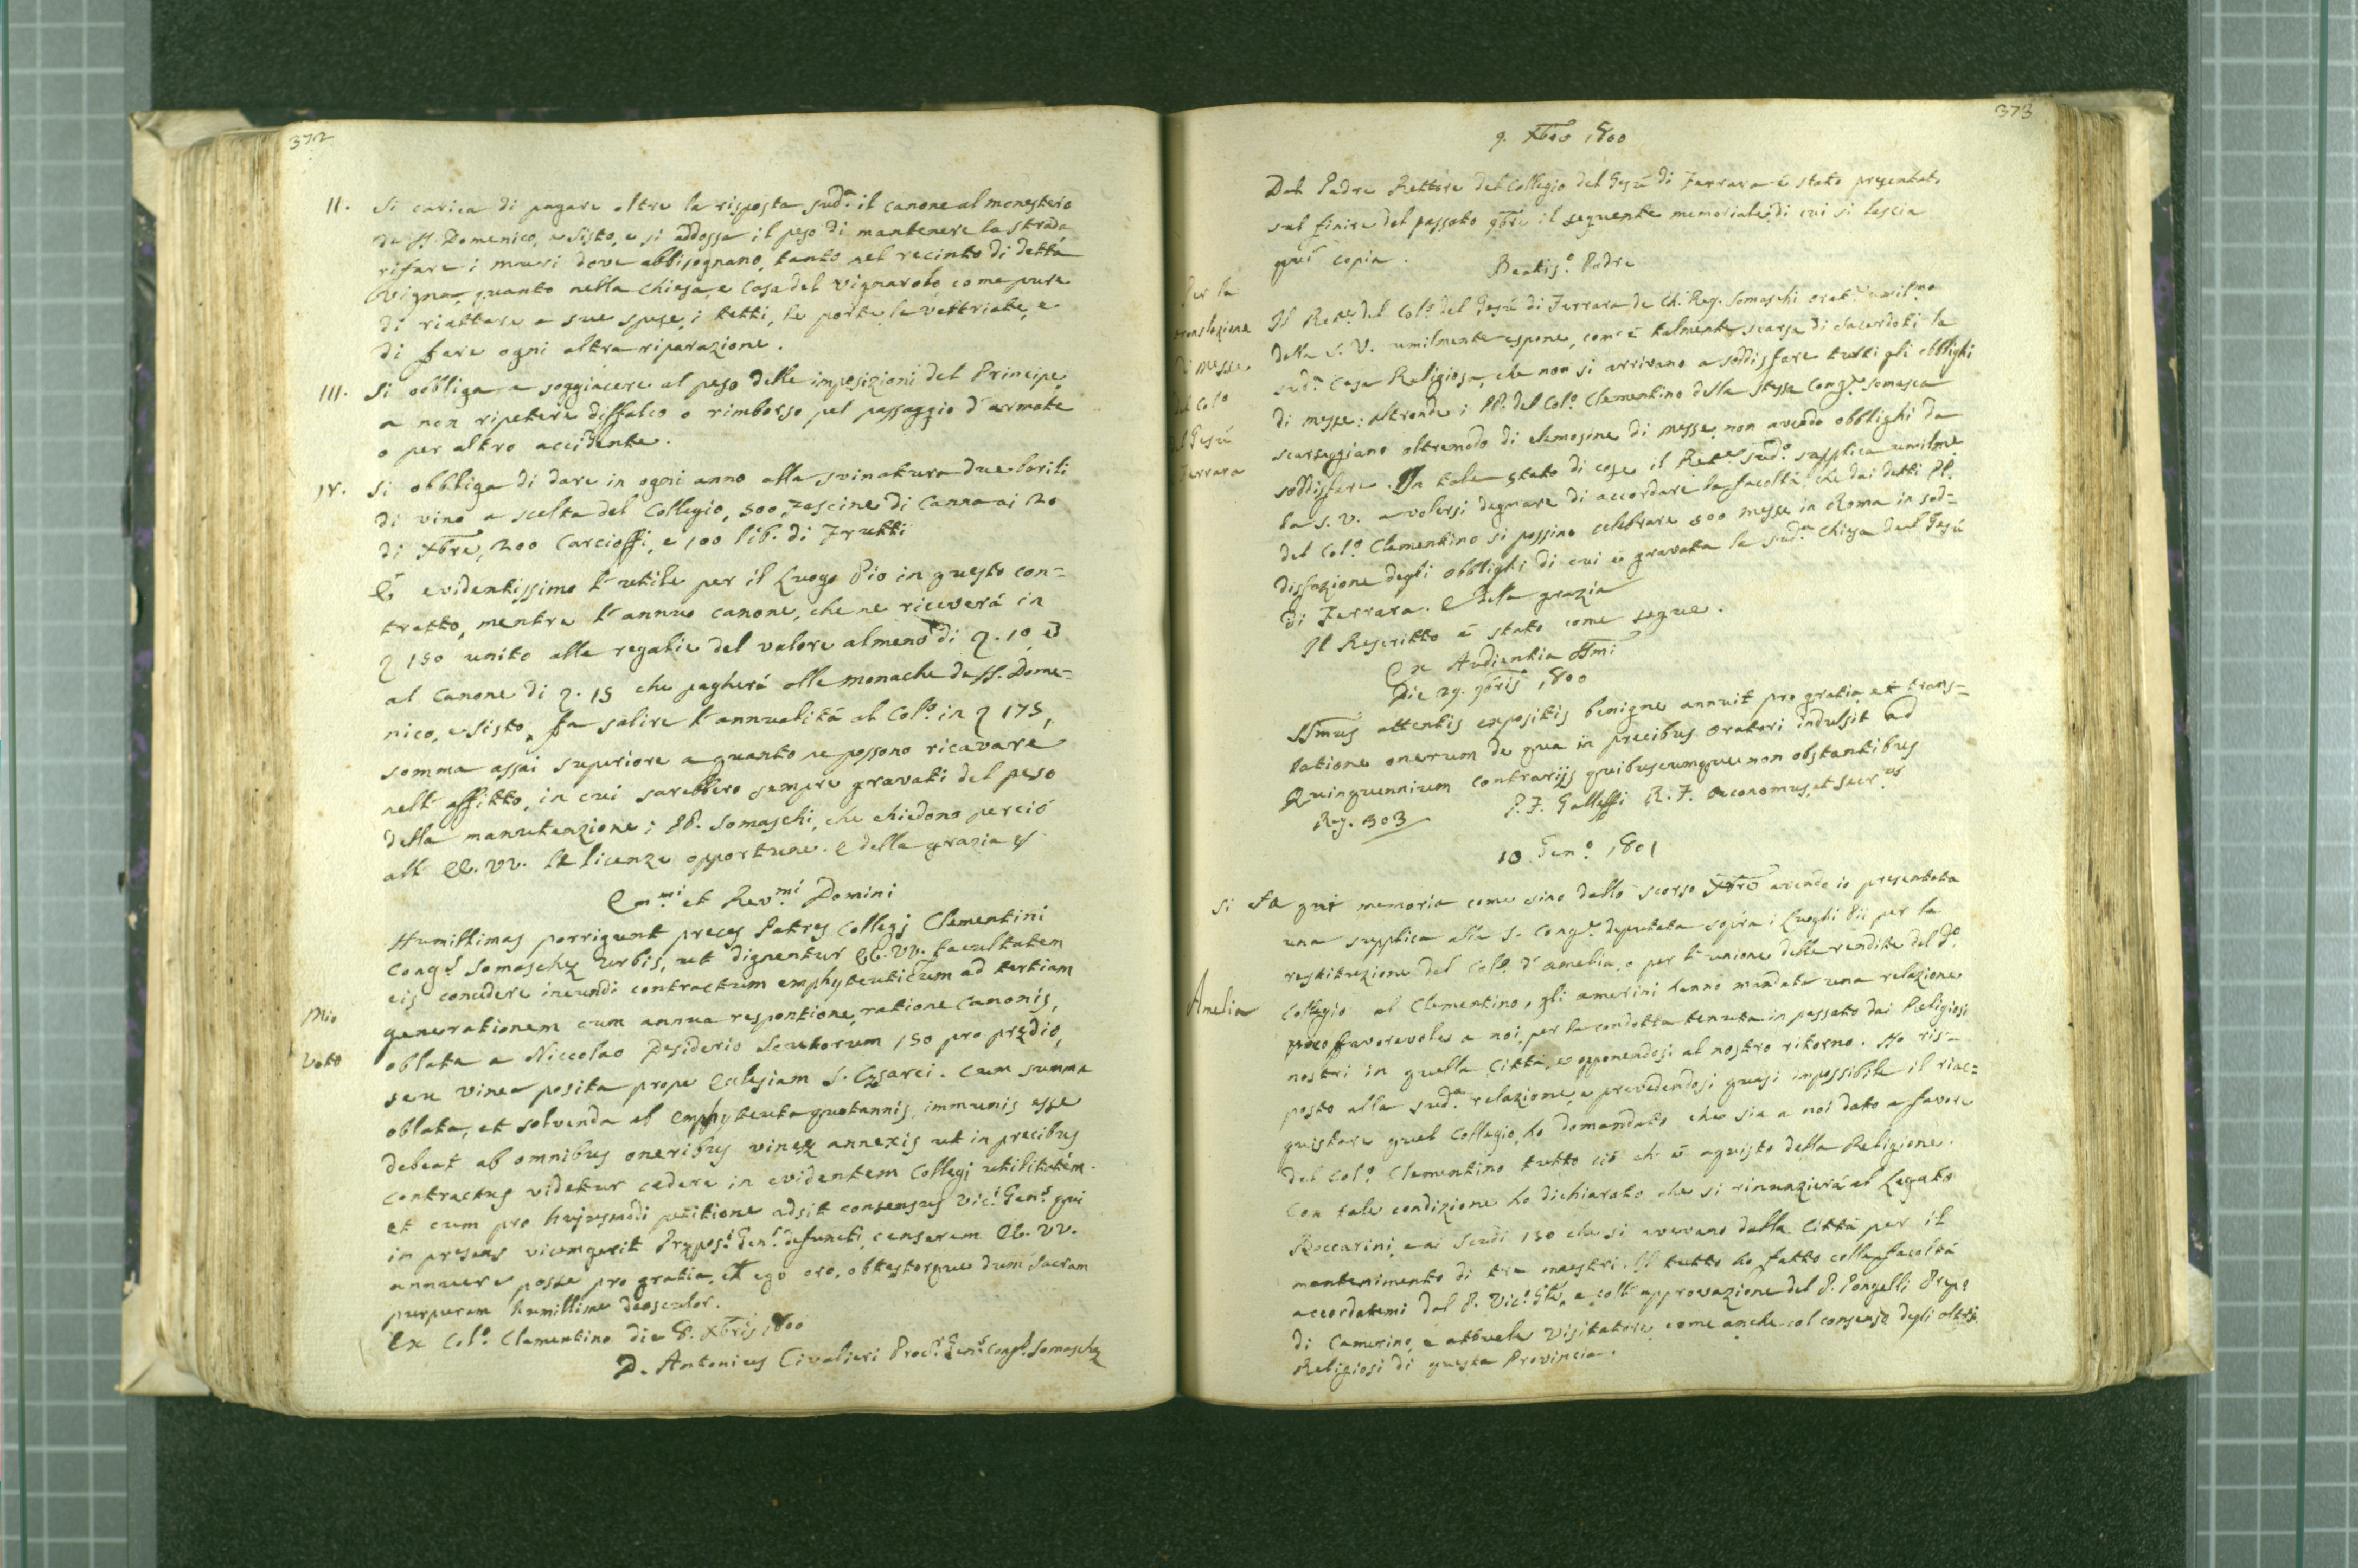 372
II. Si carica di pagare oltre la risposta sud.a il canone al monestero
de SS. Domenico, e Sisto, e si addossa il peso di mantenere la strada
rifare i muri dove abbisognano, tanto nel recinto di detta
vigna, quanto nella Chiesa, e Casa del vignarolo come pure
di riattare a sue spese, i tetti, le porte, le vettriate, e
di fare ogni altra riparazione.
III. Si obbliga a soggiacere al peso delle imposizioni del Principe
a non ripetere diffalco o rimborso pel passaggio d'armate
o per altro accidente.
IV. Si obbliga di dare in ogni anno alla svinatura due barili
di vino a scelta del Collegio, 500 Fascine di Canna ai 20
di Xbre, 200 Carcioffi, e 100 lib. di Frutti
È evidentissimo l'utile per il Luogo Pio in questo con=
tratto, mentre l'annuo canone, che ne riceverá in
150 unito alle regalie del valore almeno di 10, e
al Canone di 15 che pagherá alle monache de SS. Dome=
nico, e Sisto, fa salire l'annualitá al Col.o in 175,
somma assai superiore a quanto ne possono ricavare
nell'affitto, in cui sarebbero sempre gravati del peso
della manutenzione i PP. Somaschi, che chiedono perció
all'EE. VV. le licenze opportune. E della grazia
Em.mi et Rev.mi Domini
Humillimas porrigunt preces Patres Collegj Clementini
Cong.s Somaschę Urbis, ut dignentur EE. VV. facultatem
eis concedere ineundi contractum emphyteuticum ad tertiam
Mio generationem cum annua responsione, ratione Canonis,
Voto oblata a Niccolao Desiderio Scutorum 150 pro prędio,
seu vinea posita prope Ecclesiam S. Cęsarei. Cum summa
oblata, et solvenda ab Emphyteuta quotannis, immunis esse
debeat ab omnibus oneribus vineę annexis ut in precibus
contractus videtur cedere in evidentem Collegj utilitatem.
et cum pro hujusmodi petitione adsit consensus Vic.i Gen.s qui
in presens vicemgerit Prępos.i Gen.s defuncti, censerem EE. VV.
annuere posse pro gratia, et ego oro, obtestorque dum Sacram
purpuram humillime deosculor.
Ex Col.o Clementino die 8. Xbris 1800
D. Antonius Civalieri Proc.r Gen.s Cong.s Somaschę
373
9. Xbre 1800
Dal Padre Rettore del Collegio del Gesú di Ferrara é stato presentato
sul finire del passato 9bre il seguente memoriale, di cui si lascia
quí copia.
Beatis.o Padre
Per la
translazione
di Messe
del Col.o
del Gesú
Ferrara
Il Ret.e del Col.o del Gesú di Ferrara de Ch. Reg. Somaschi orat.e umil.mo
della S. V. umilmente espone, com'é talmente scarsa di Sacerdoti la
sud.a Casa Religiosa, che non si arrivano a soddisfare tutti gli obblighi
di messe: altronde i PP. del Col.o Clementino della stessa Cong.e Somasca
scarseggiano oltremodo di elemosine di Messe, non avendo obblighi da
soddisfare. In tale stato di cose il Ret.e sud.o supplica umilme.
la S. V. a volersi degnare di accordare la facoltá, che dai detti PP.
del Col.o Clementino si possino celebrare 500 messe in Roma in sod=
disfazione degli obblighi di cui é gravata la sud.a Chiesa del Gesú
di Ferrara. E della grazia
Il Rescritto é stato come segue.
Ex Audientia SSmi
Die 29. 9bris 1800
SSmus attentis expositis benigne annuit pro gratia, et trans=
latione onerum de qua in precibus Oratori indulsit ad
Quinquennium Contrarijs quibuscumque non obstantibus
P. F. Galleffi R. F. Oeconomus, et Secr.us
Reg. 303
10 Gen.o 1801
Si fa qui memoria come sino dallo scorso Xbre avendo io presentata
una supplica alla S. Cong.e deputata sopra i Luoghi Pii per la
restituzione del Coll. d'Amelia, o per l'unione delle rendite del d.o
Amelia Collegio al Clementino, gli amerini hanno mandata una relazione
poco favorevole a noi, per la condotta tenuta in passato dai Religiosi
nostri in quella Cittá, e opponendosi al nostro ritorno. Ho ris=
posto alla sud.a relazione, e prevedendosi quasi impossibile il riac=
quistare quel Collegio, ho domandato che sia a noi dato a favore
del Col.o Clementino tutto ció ch'é aquisto della Religione.
Con tale condizione ho dichiarato che si rinunzierá al Legato
Boccarini, e ai Scudi 150 che si avevano dalla Cittá per il
mantenimento di tre maestri. Il tutto ho fatto colla facoltá
accordatemi dal P. Vic.o Gle, e coll'approvazione del P. Pongelli Prep.o
di Camerino, e attuale Visitatore, come anche col consenso degli altri
Religiosi di questa Provincia.